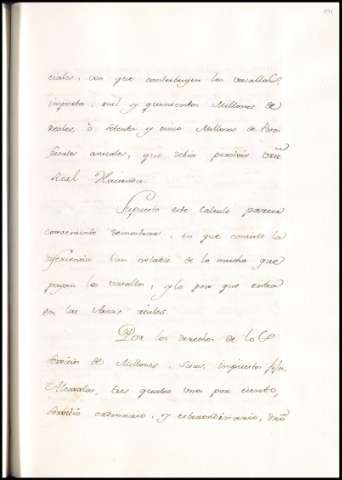 ciales, con que contribuyen los vasallos,
importa, mil y quinientos Millones de
reales, ò setenta y cinco Millones de Pesos
fuertes anuales, que debia percivir
Real Hacienda.
Supuesto este calculo parece
combeniente demostrar, en que consiste la
diferiencia tan notable de lo mucho que
pagan los vasallos, y lo poco que entra
en las Arcas reales.
Por los derechos de los
de Millones, Sisas, impuestos
Alcavalas, tres quatro unos por ciento,
Servicio ordinario, y extraordinario,